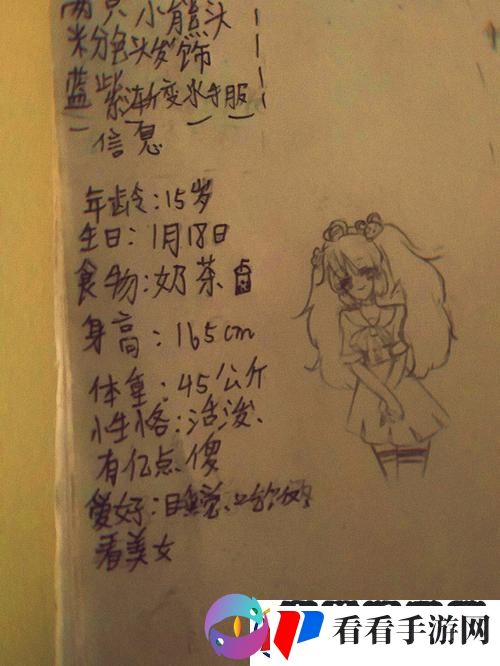 两只小熊头
粉色头发饰
蓝紫渐变水手服
信息
年龄:15岁
生日:1月18日
食物:奶茶
身高:165cm
体重:45公斤
性格:活泼、
有亿点傻
爱好:睡觉、
看美女
看看手游网